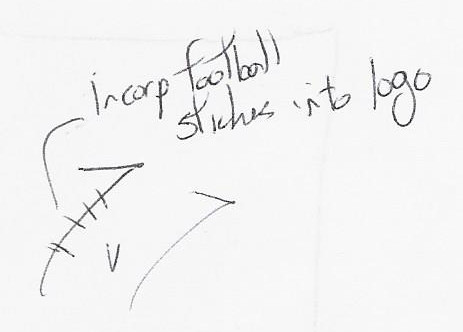 incorp football
stiches into logo
V